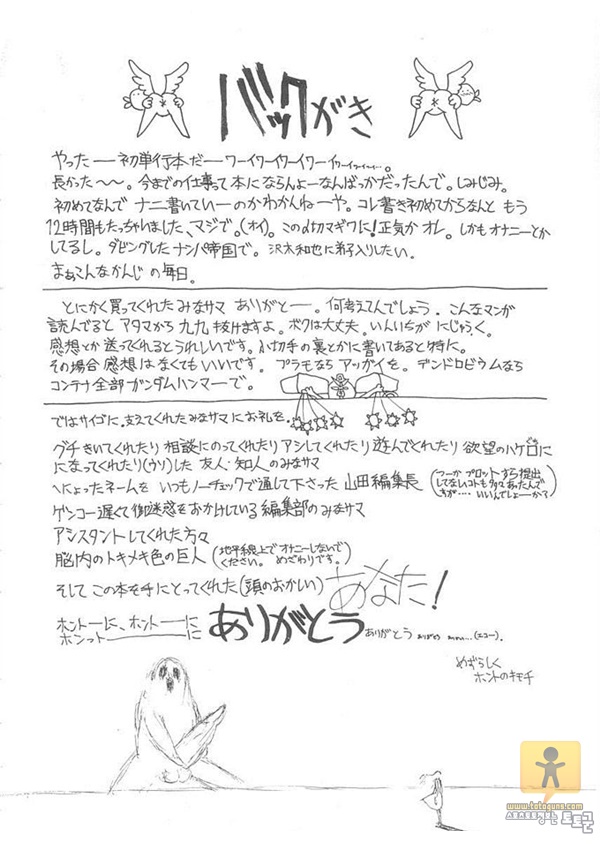 バックがき
やったー初単行本だーーワーイワーイワーイワーイワーイワーイ……。
長かった〜〜。今までの仕事って本にならんよーなんばっかだったんで。しみじみ。
初めてなんで ナニ書いていーのかわかんねーや。コレ書き初めてからなんと もう
12時間もたっちゃいました、マジで。(オイ)。この〆切マギワに!正気か オレ。しかもオナニーとか
してるし。ダビングしたナンパ帝国で。沢太和也に弟子入りしたい。
まぁこんなかんじ の毎日。
とにかく買ってくれた みなサマ ありがとーー。何考えてんでしょう。こんなマンガ
読んでると アタマから 九九 抜けますよ。ボクは大丈夫。いんいちが にじゅうく。
感想とか 送ってくれると うれしいです。小切手の裏とかに書いてあると特に。
その場合 感想は なくてもいいです。プラモなら アッガイを。デンドロビウムなら
コンテナ全部 ガンダムハンマーで。
ではサイゴに、支えてくれた みなサマ にお礼を。
グチ きいてくれたり 相談にのってくれたり アシしてくれたり 遊んでくれたり 欲望のハケ口に
になってくれたり(ウソ)した 友人・知人のみなサマ
へにょったネームを いつもノーチェックで通して下さった 山田編集長
(つーか プロットすら提出
してないコトも多々あったんで
すが…‥いいんでしょーか?)
ゲンコー遅くて御迷惑をおかけしている 編集部のみなサマ
アシスタントしてくれた方々
脳内のトキメキ色の巨人
(地平線上でオナニーしないで
ください。めざわりです。)
そして この本を手にとってくれた(頭のおかしい) あなた!
ホントーに、ホントーに
ホンットーーーーに ありがとう ありがとう ありがとう ……(エコー)。
めずらしく
ホントのキモチ
www.totoguns.com
스포츠토토정보 토토군